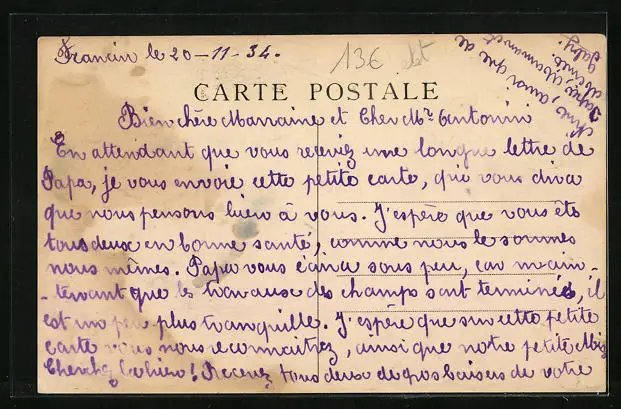 Francin le 20-11-34.
13€
CARTE POSTALE
Bien chère Marraine et Cher Mr. Antonini
En attendant que vous receviez une longue lettre de
Papa, je vous envoie cette petite carte, qui vous dira
que nous pensons bien à vous. J'espère que vous êtes
tous deux en bonne santé, comme nous le sommes
nous mêmes. Papa vous écrira sous peu, car main-
-tenant que les travaux des champs sont terminés, il
est un peu plus tranquille. J'espère que sur cette petite
carte vous nous reconnaîtrez, ainsi que notre petite Miz
Cherchez bien! Recevez tous deux de gros baisers de votre
ainsi que de
Papa, Maman et